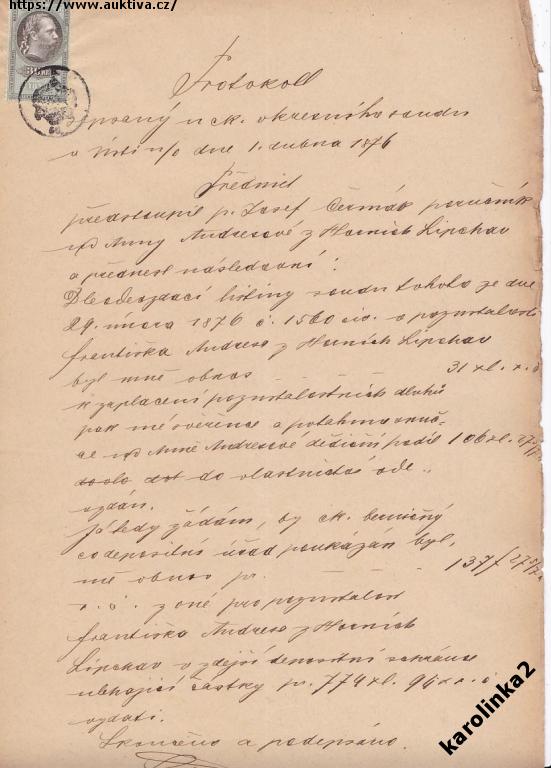 https://www.auktiva.cz/
Protokoll
sepsaný u ck. okresního soudu
v Ústí n/o dne 1. dubna 1876
Předmět
předstoupil p. Josef Čermák poručník
nad Anny Andresové z Horních Lipchav
a přednesl následovní:
Dle odevzdací listiny soudu tohoto ze dne
29. února 1876 č. 1560 civ. o pozůstalosti
Františka Andrese z Horních Lipchav
byl mně obnos 31 zl. r. č
k zaplacení pozůstalostních dluhů
pak mé svěřence a potahmo
nezl. Anně Andresové dědičný podíl 106 zl. 27
do vlastnictví ode-
vzdán.
Já tedy žádám, by ck. berničný
co depositní úřad poukázán byl,
mě obnos pr. 137 f 27
r. č. z oné pro pozůstalost
Františka Andrese z Horních
Lipchav v zdejší depositní schránce
ubíhající částky pr. 774 zl. 94 x r. č.
vydati.
Skončeno a podepsáno.
karolinka2